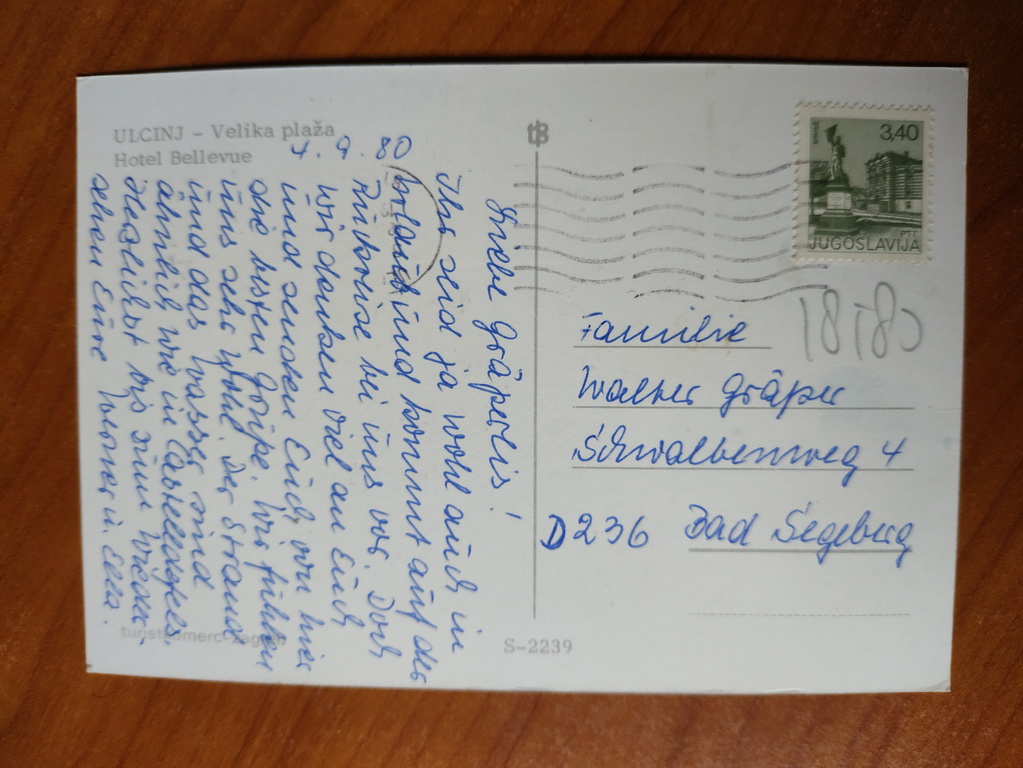 ULCINJ – Velika plaža
Hotel Bellevue
4. 9. 80
Liebe Gräperlis!
Ihr seid ja wohl auch in
Urlaub und kommt auf der
Rückreise bei uns vor. Doch
wir danken viel an Euch
und senden Euch von hier
die besten Grüße. Wir fühlen
uns sehr wohl. Der Strand
und das Wasser sind
ähnlich wie in
Herzlichst bis zum Wieder-
sehen Eure Werner u. Ella.
turistkomerc-zagreb
S-2239
tB
3,40
PTT
JUGOSLAVIJA
18TBJ
Familie
Walter Gräper
Schwalbenweg 4
D 236 Bad Segeberg